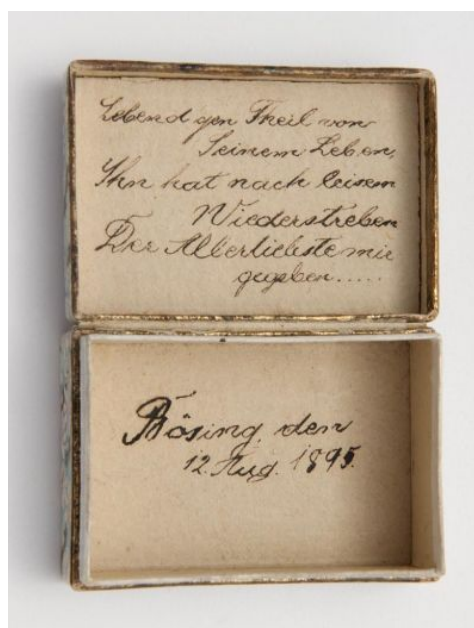 Lebend'gen Theil von
Seinem Leben,
Ihn hat nach leisem
Wiederstreben
Der Allerliebste mir
gegeben.....
Bösing, den
12. Aug. 1895.